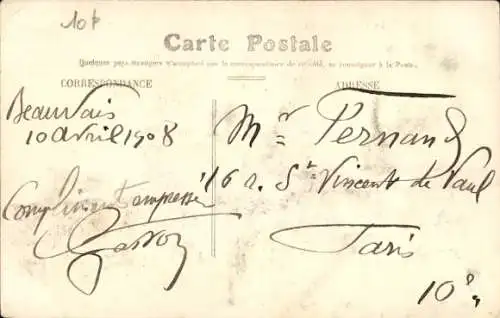 10f
Carte Postale
Quelques pays étrangers n'acceptent pas la correspondance de ce côté, se renseigner à la Poste.
CORRESPONDANCE
ADRESSE
Beauvais
10 avril 1908
Compliments empressés
Mr Fernand
16 r. St Vincent de Paul
Paris
10e